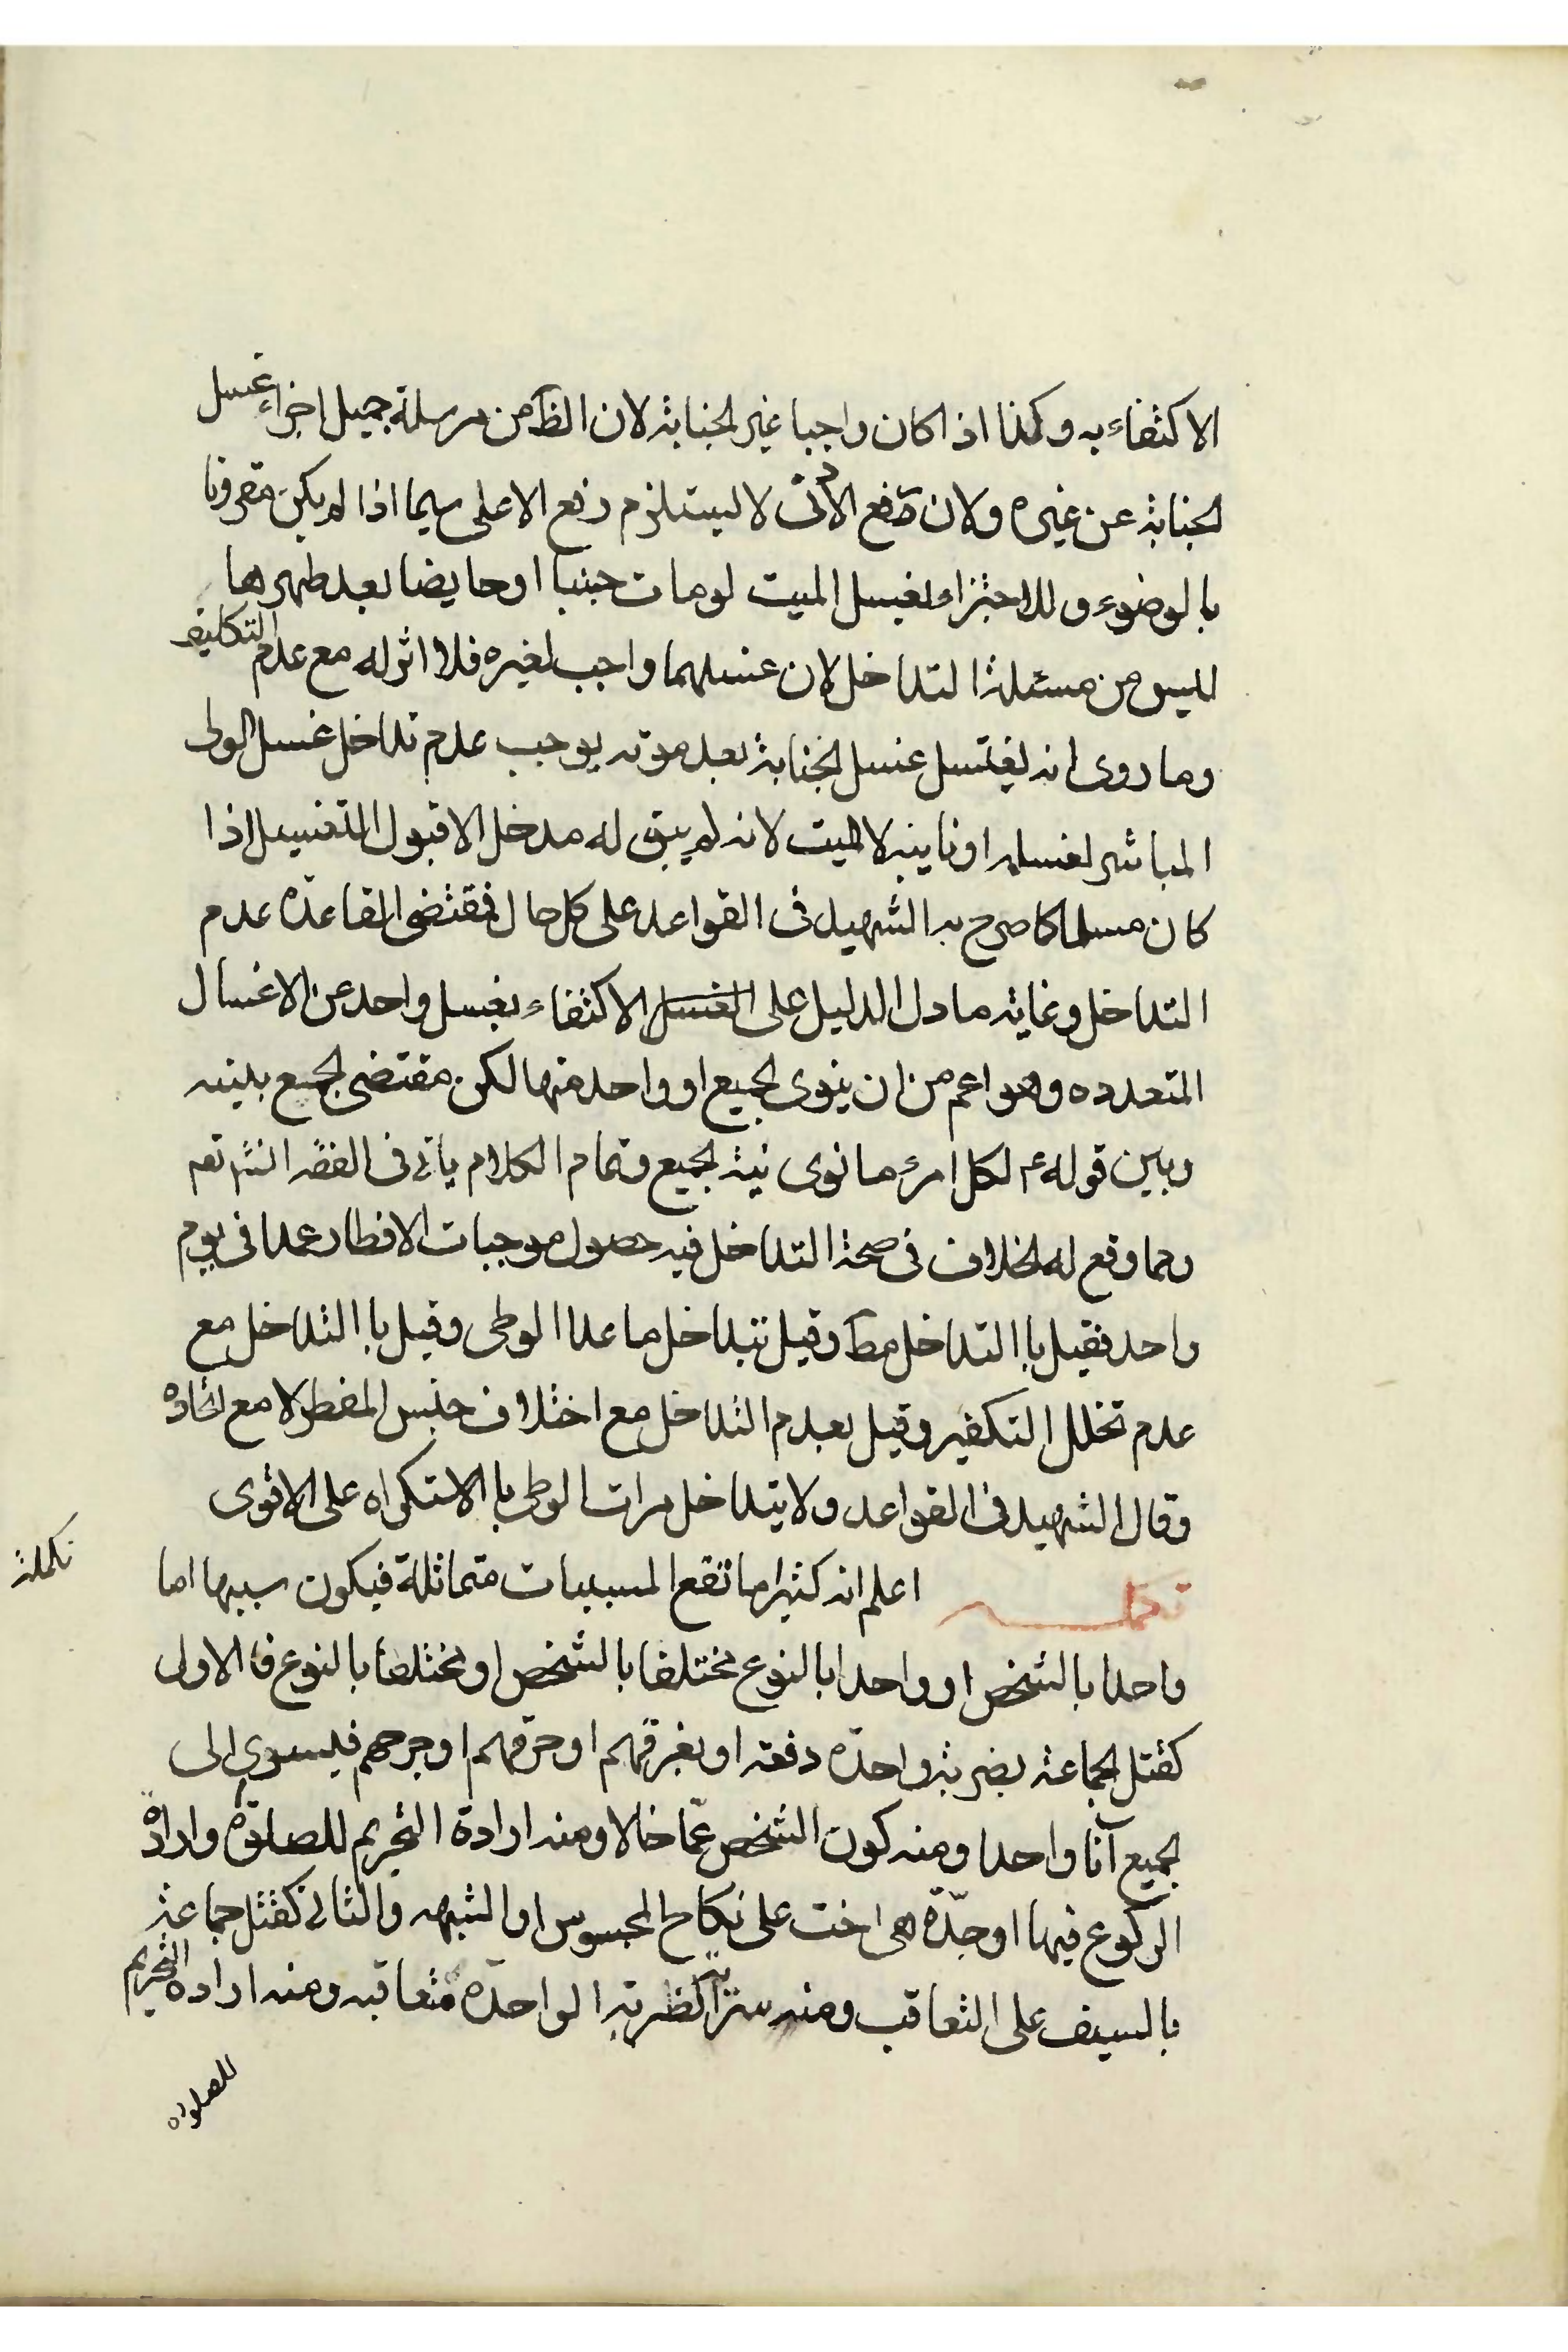 الاكتفاء به وكذا اذا كان واجبا غير الجنابة لان الظ من مرسلة جميل اجزاء غسل
الجنابة عن غيره ولان رفع الادنى لا يستلزم رفع الاعلى سيما اذا لم يكن مقرونا
بالوضوء وللاجتزاء بغسل الميت لو مات جنبا او حايضا بعد طهرها
ليس من مسئلة التداخل لان غسلهما واجب لغيره فلا اثر له مع عدم التكليف
وما روى انه يغتسل غسل الجنابة بعد موته يوجب عدم تداخل غسل الولى
المباشر لغسله او نايبه لا الميت لانه لم يبق له مدخل الا قبول التغسيل اذا
كان مسلما كما صرح به الشهيد فى القواعد على كل حال فمقتضى القاعدة عدم
التداخل وغايته ما دل الدليل على الغسل الاكتفاء بغسل واحد عن الاغسال
المتعدده وهو اعم من ان ينوى الجميع او واحد منها لكن مقتضى الجمع بينه
وبين قوله ع لكل امرء ما نوى نية الجميع وتمام الكلام ياتى فى الفقه انش تعم
ومما وقع له الخلاف فى صحة التداخل فيه حصول موجبات الافطار عمدا فى يوم
واحد فقيل باالتداخل مط وقيل تتداخل ما عدا الوطى وقيل باالتداخل مع
عدم تخلل التكفير وقيل بعدم التداخل مع اختلاف جنس المفطر لا مع اتحاده
وقال الشهيد فى القواعد ولا يتداخل مرات الوطى باالاستكراه على الاقوى
تكملة
تكملة اعلم انه كثيرا ما تقع المسببات متماثلة فيكون سببها اما
واحدا بالشخص او واحدا بالنوع مختلفا بالشخص او مختلفا بالنوع فالاول
كقتل الجماعة بضربة واحدة دفعة او بغرقهم او حرقهم او جرحهم فيسرى الى
الجميع آنا واحدا ومنه كون الشخص عما خالا ومنه ارادة التحريم للصلوة وارادة
الركوع فيها او جدة هى اخت على نكاح المجوس او الشبهه والثانى كقتل جماعة
بالسيف على التعاقب ومنه الضربة الواحدة متعاقبه ومنه اراده التحريم
للصلوه